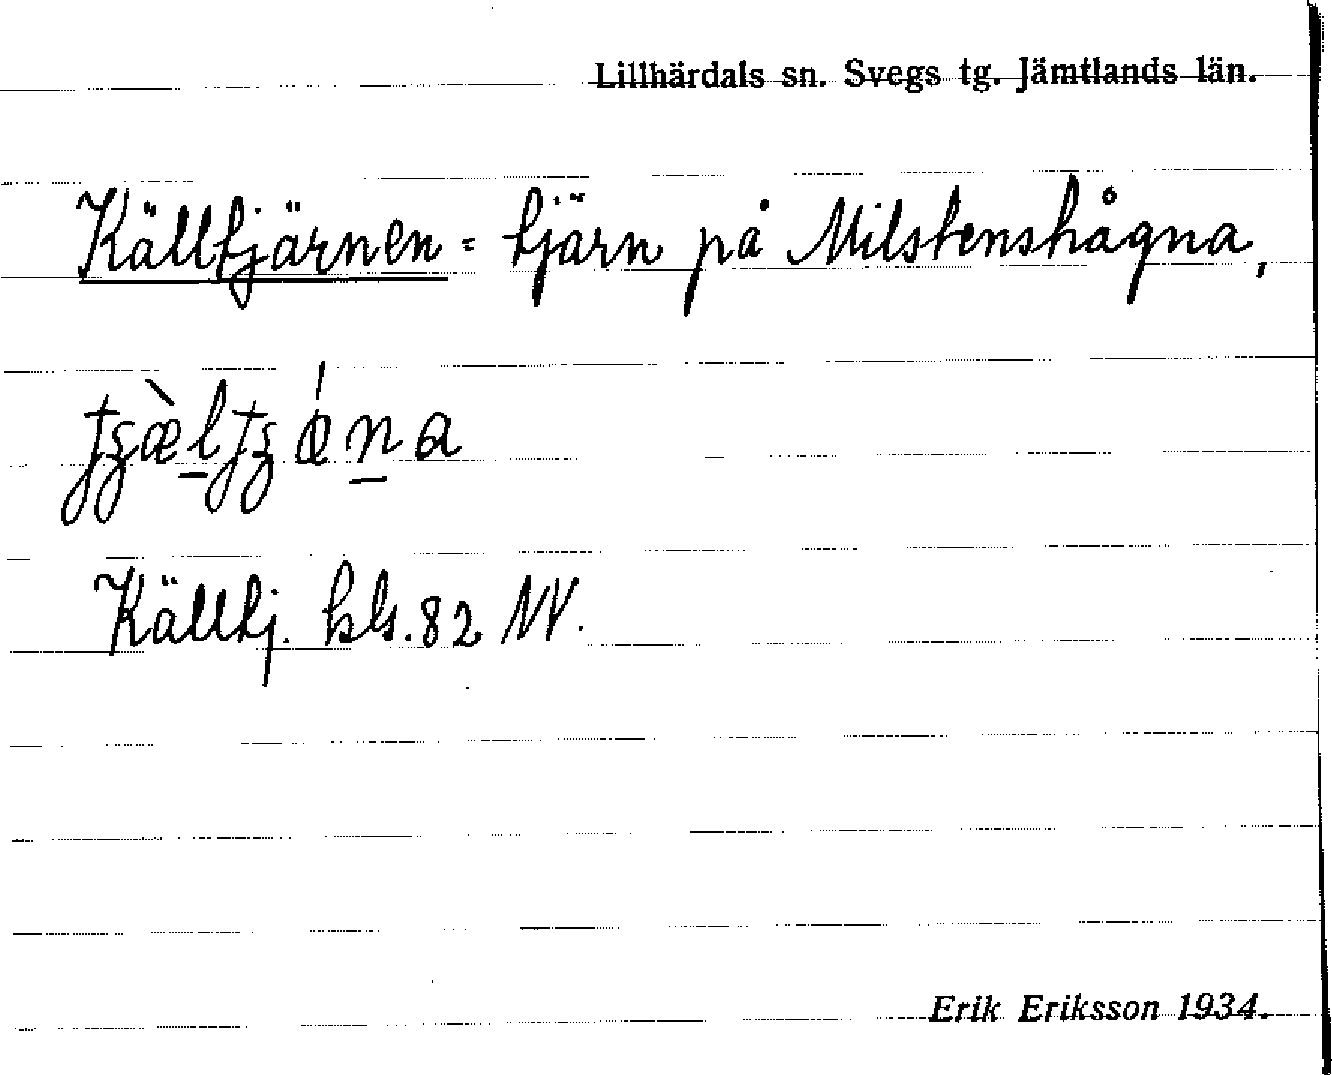 Lillhärdals sn. Svegs tg. Jämtlands län.
Källtjärnen = tjärn på Milstenshågna,
Källtj. kbl. 82 NV.
Erik Eriksson 1934.